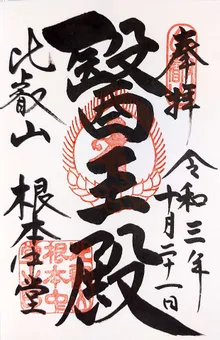 奉拝
令和三年
十月二十一日
醫王殿
比叡山
根本中堂
根本中